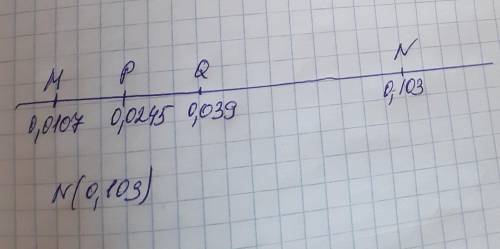 M P Q N
0,0107 0,0245 0,039 0,103
N(0,103)